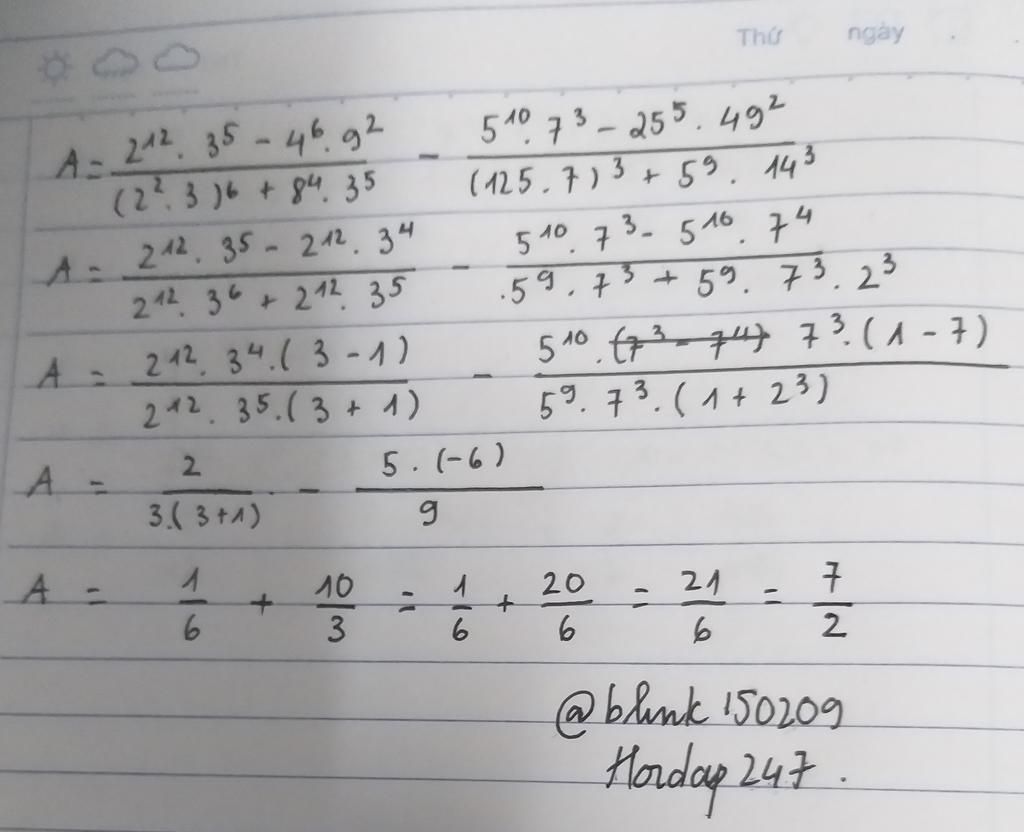 Thứ ngày .
A = \frac{2^{12} . 3^5 - 4^6 . 9^2}{(2^2 . 3)^6 + 8^4 . 3^5} - \frac{5^{10} . 7^3 - 25^5 . 49^2}{(125 . 7)^3 + 5^9 . 14^3}
A = \frac{2^{12} . 3^5 - 2^{12} . 3^4}{2^{12} . 3^6 + 2^{12} . 3^5} - \frac{5^{10} . 7^3 - 5^{10} . 7^4}{.5^9 . 7^3 + 5^9 . 7^3 . 2^3}
A = \frac{2^{12} . 3^4 . (3 - 1)}{2^{12} . 3^5 . (3 + 1)} - \frac{5^{10} . ~~(7^3 - 7^4)~~ 7^3 . (1 - 7)}{5^9 . 7^3 . (1 + 2^3)}
A = \frac{2}{3.(3+1)} - \frac{5 . (-6)}{9}
A = \frac{1}{6} + \frac{10}{3} = \frac{1}{6} + \frac{20}{6} = \frac{21}{6} = \frac{7}{2}
@blink150209
Hoidap 247 .